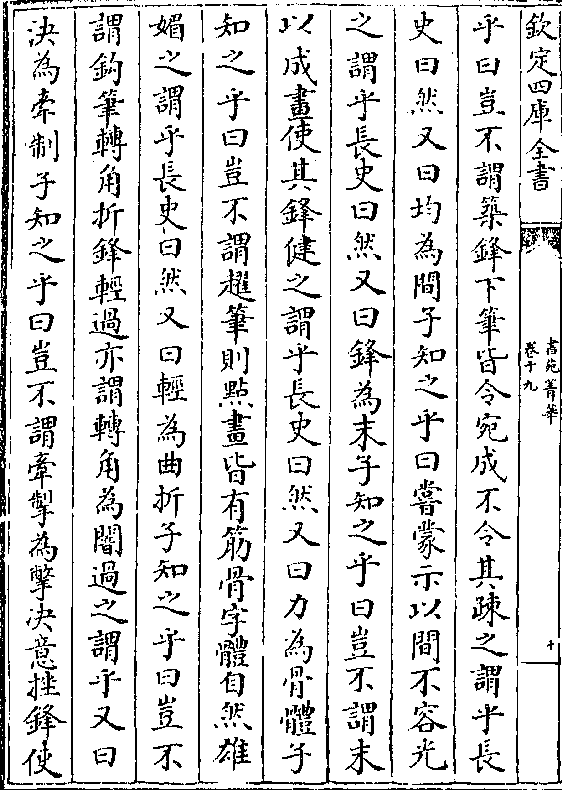 欽定四庫全書
書苑菁華
卷十九
十
乎曰豈不謂築鋒下筆皆令宛成不令其疎之謂乎長
史曰然又曰均為間子知之乎曰嘗蒙示以間不容光
之謂乎長史曰然又曰鋒為末子知之乎曰豈不謂末
以成畫使其鋒健之謂乎長史曰然又曰力為骨體子
知之乎曰豈不謂趯筆則點畫皆有筋骨字體自然雄
媚之謂乎長史曰然又曰輕為曲折子知之乎曰豈不
謂鈎筆轉角折鋒輕過亦謂轉角為闇過之謂乎又曰
決為牽制子知之乎曰豈不謂牽掣為擎決意挫鋒使